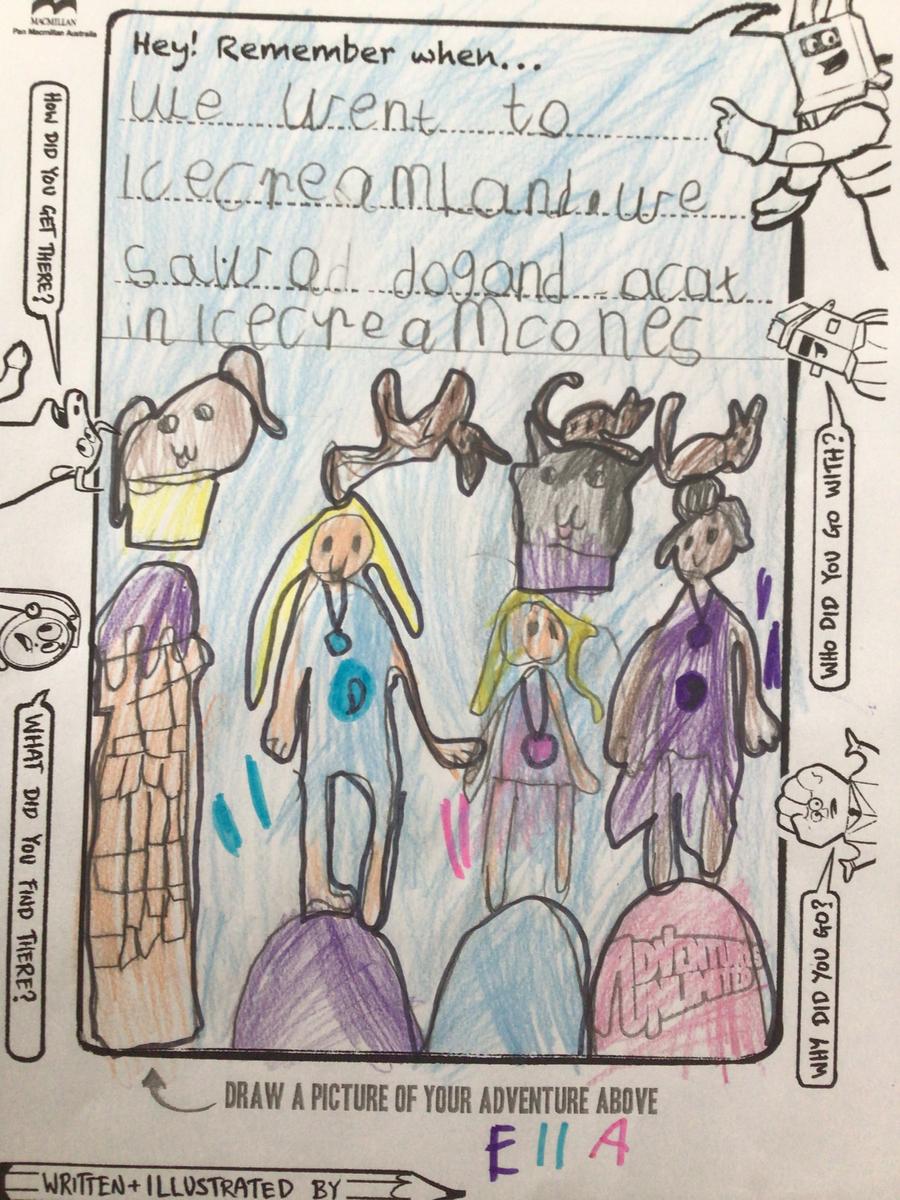 MACMILLAN
Pan Macmillan Australia
Hey! Remember when...
We went to
Icecreamland. we
saw ad dogand acat
in Icecreamcones
HOW DID YOU GET THERE?
WHO DID YOU GO WITH?
WHAT DID YOU FIND THERE?
WHY DID YOU GO?
ADVENTURES
UNLIMITED
DRAW A PICTURE OF YOUR ADVENTURE ABOVE
EllA
WRITTEN+ILLUSTRATED BY